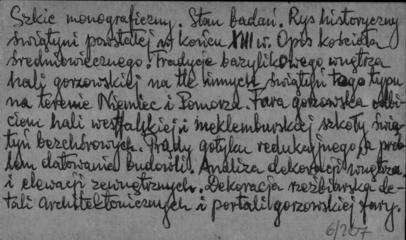 Szkic monograficzny. Stan badań. Rys historyczny
świątyni powstałej w końcu XIII w. Opis kościoła
średniowiecznego. Tradycje bazylikowego wnętrza
hali gorzowskiej na tle innych świątyń tego typu
na terenie Niemiec i Pomorza. Fara gorzowska odbi-
ciem hali westfalskiej i meklemburskiej szkoły świą-
tyń bezchórowych. Trady gotyku redukcyjnego a pro-
blem datowania budowli. Analiza dekoracji wnętrza
i elewacji zewnętrznych. Dekoracja rzeźbiarska de-
tali architektonicznych i portali gorzowskiej fary.
6/207